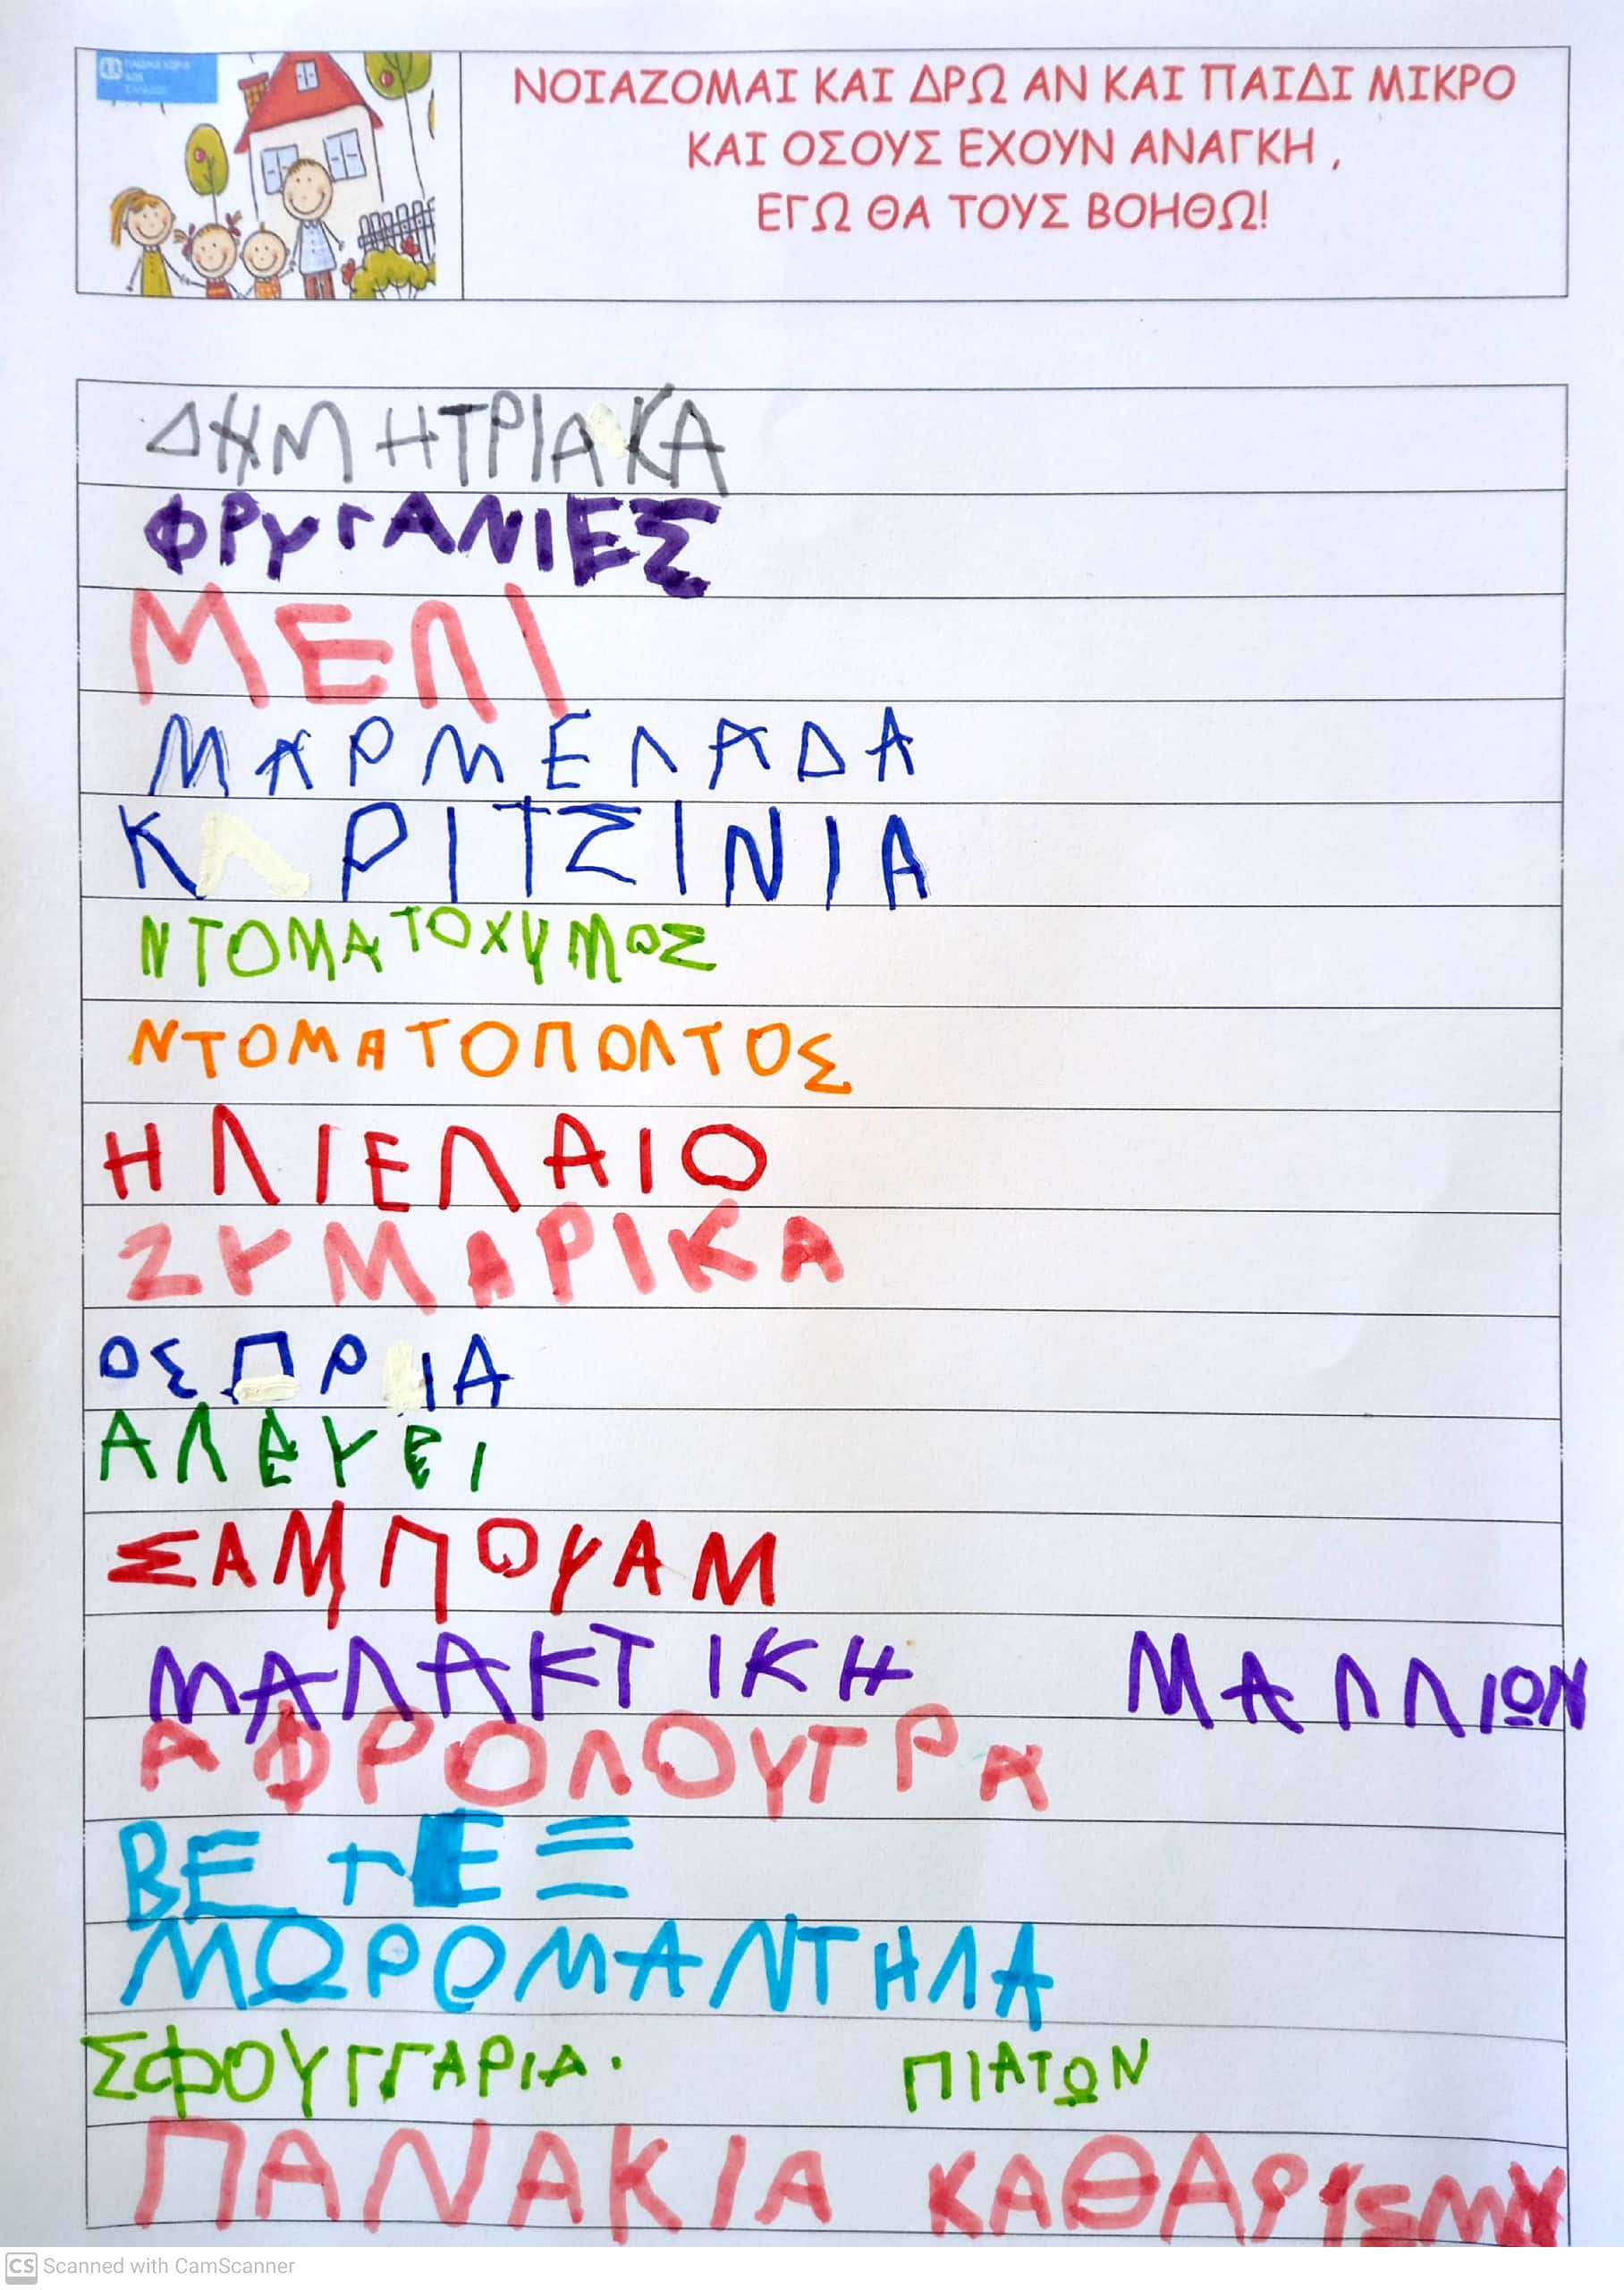 ΠΑΙΔΙΚΑ ΧΩΡΙΑ
SOS
ΕΛΛΑΔΟΣ
ΝΟΙΑΖΟΜΑΙ ΚΑΙ ΔΡΩ ΑΝ ΚΑΙ ΠΑΙΔΙ ΜΙΚΡΟ
ΚΑΙ ΟΣΟΥΣ ΕΧΟΥΝ ΑΝΑΓΚΗ ,
ΕΓΩ ΘΑ ΤΟΥΣ ΒΟΗΘΩ!
ΔΗΜΗΤΡΙΑΚΑ
ΦΡΥΓΑΝΙΕΣ
ΜΕΛΙ
ΜΑΡΜΕΛΑΔΑ
ΚΡΙΤΣΙΝΙΑ
ΝΤΟΜΑΤΟΧΥΜΟΣ
ΝΤΟΜΑΤΟΠΟΛΤΟΣ
ΗΛΙΕΛΑΙΟ
ΖΥΜΑΡΙΚΑ
ΟΣΠΡΙΑ
ΑΛΕΥΕΙ
ΣΑΜΠΟΥΑΜ
ΜΑΛΑΚΤΙΚΗ ΜΑΛΛΙΩΝ
ΑΦΡΟΛΟΥΤΡΑ
ΒΕΤΕΞ
ΜΩΡΟΜΑΝΤΗΛΑ
ΣΦΟΥΓΓΑΡΙΑ. ΠΙΑΤΩΝ
ΠΑΝΑΚΙΑ ΚΑΘΑΡΙΣΜΥ
CS Scanned with CamScanner